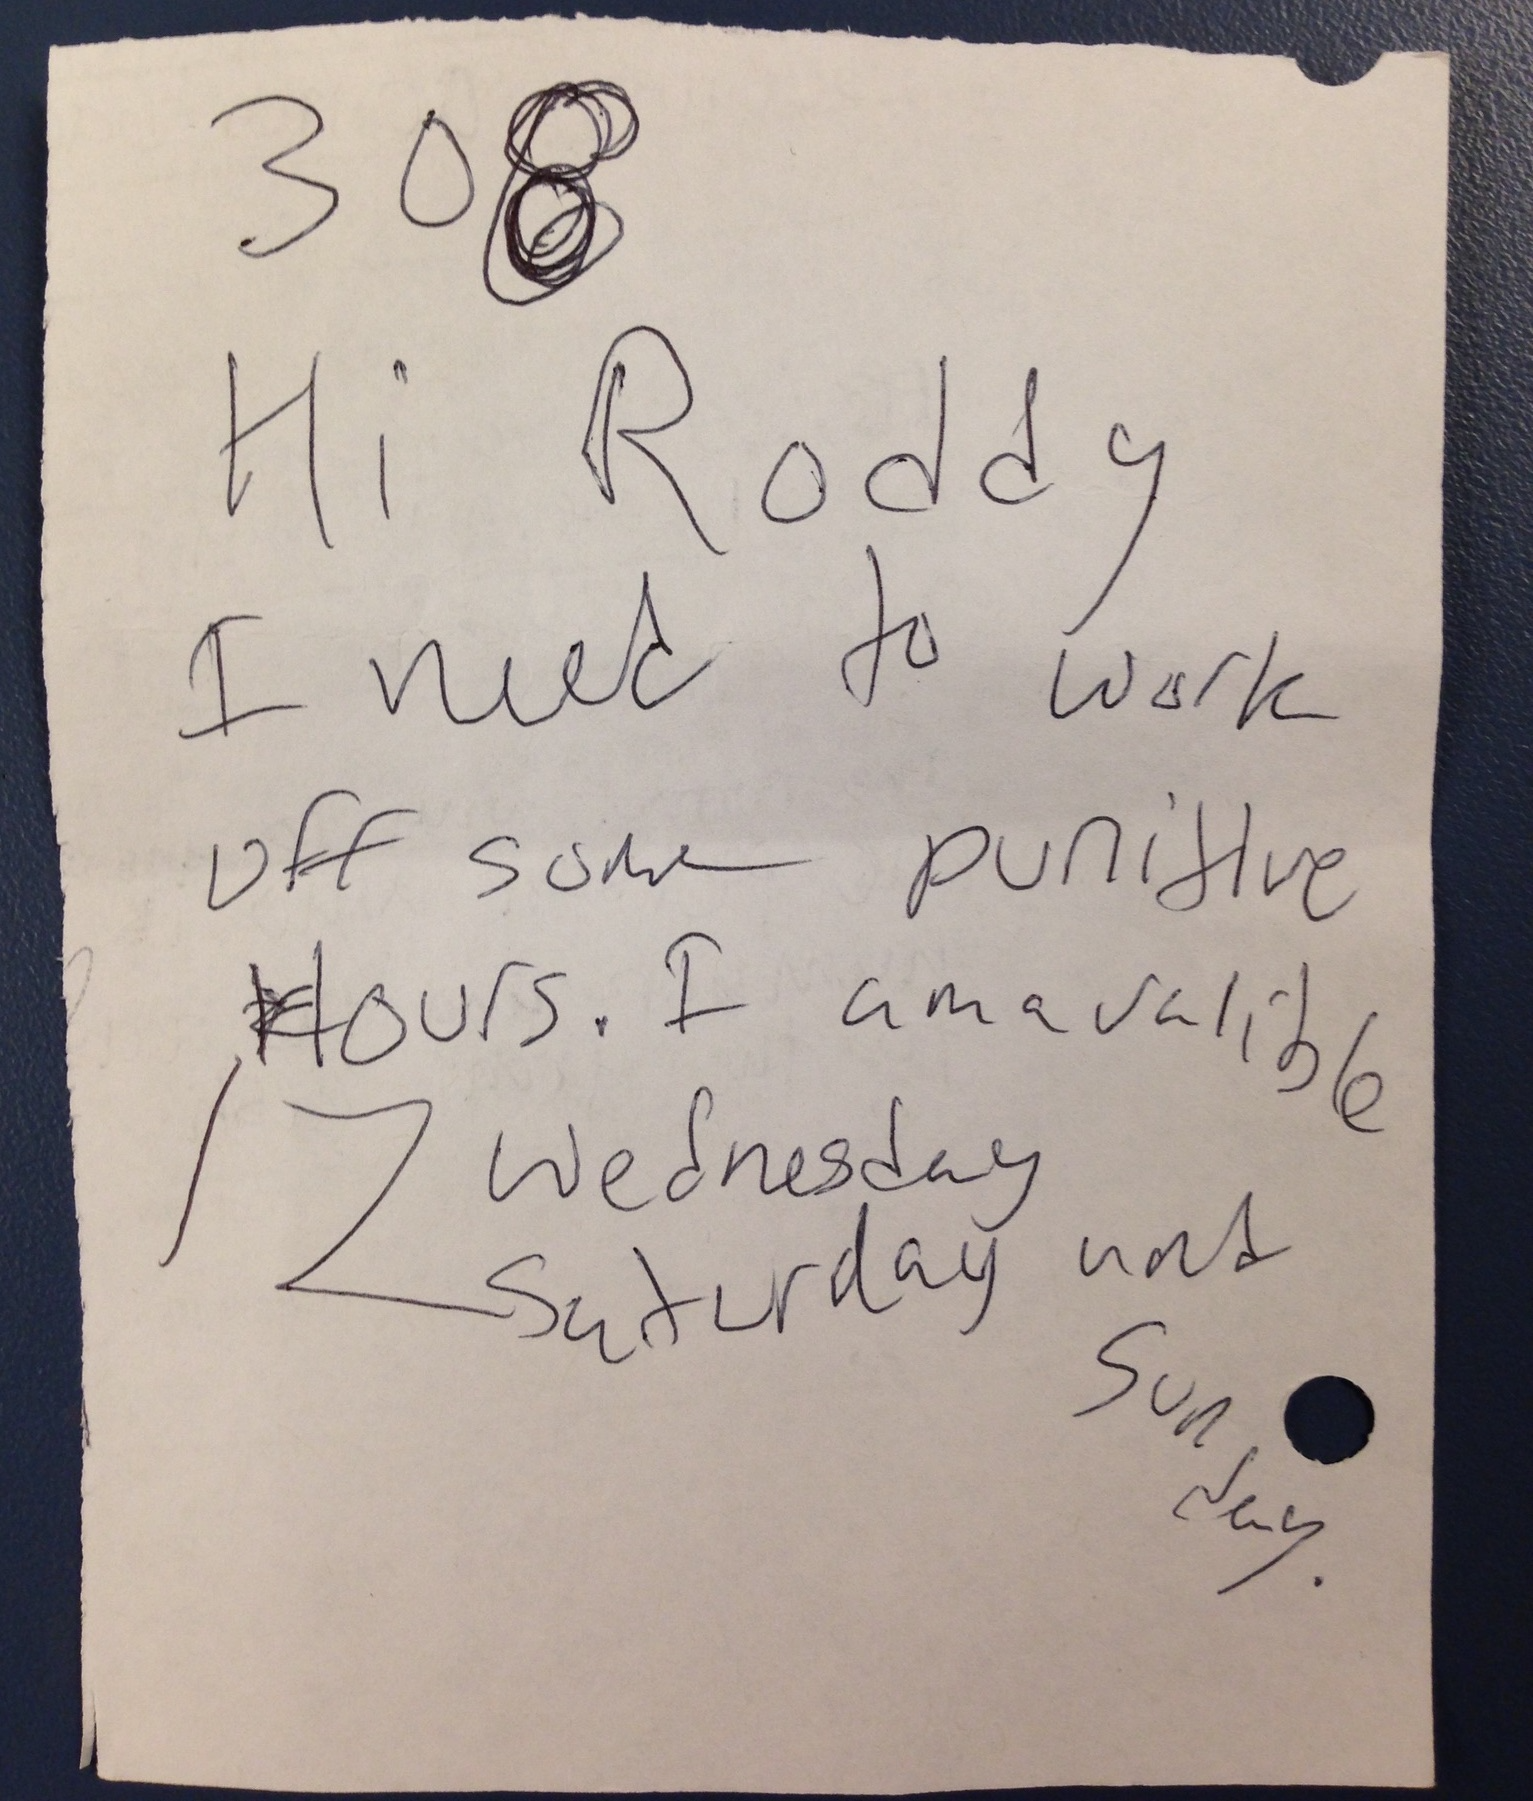 308
Hi Roddy
I need to work
off some punitive
Hours. I am avalible
Wednesday
Saturday and
Sun
day.